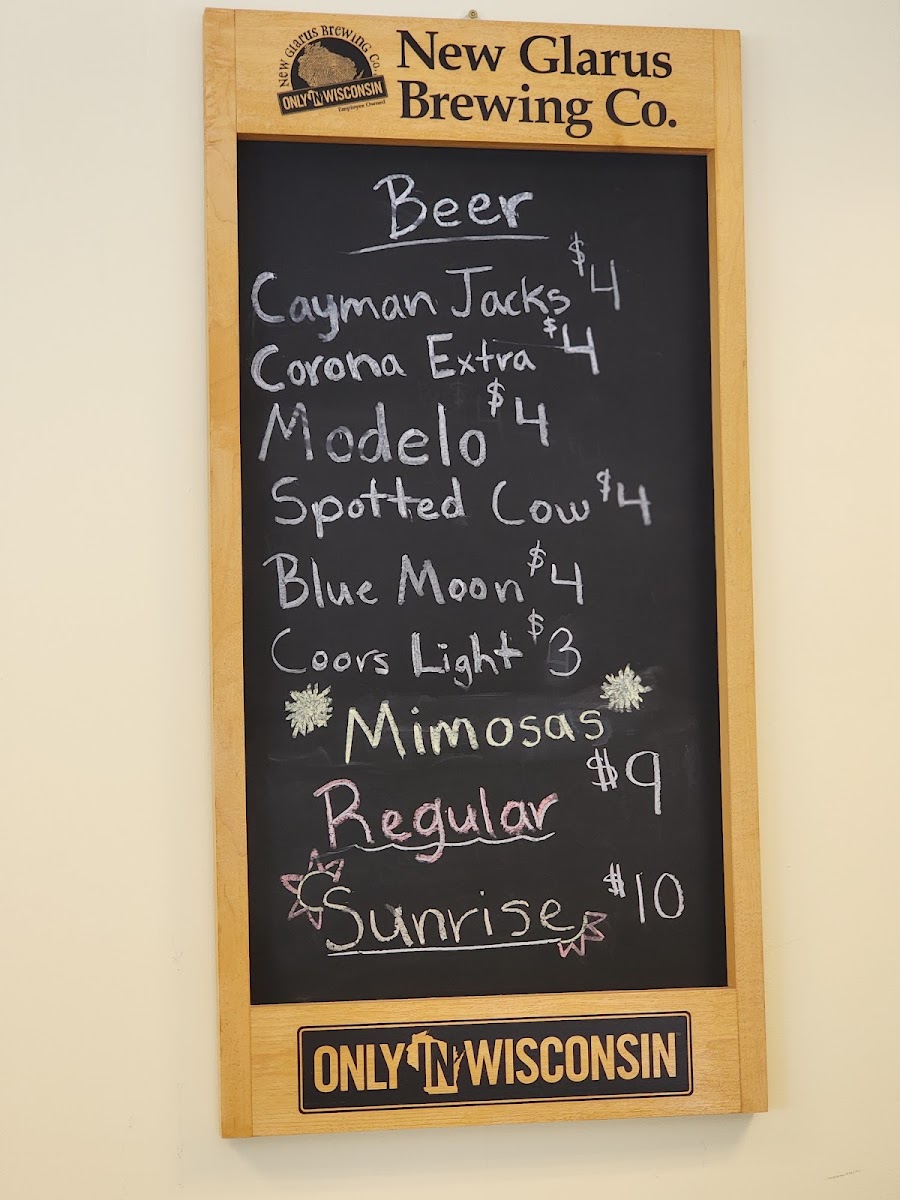 New Glarus Brewing Co.
ONLY IN WISCONSIN
Employee Owned
New Glarus
Brewing Co.
Beer
Cayman Jacks $4
Corona Extra $4
Modelo $4
Spotted Cow $4
Blue Moon $4
Coors Light $3
Mimosas
Regular $9
Sunrise $10
ONLY IN WISCONSIN